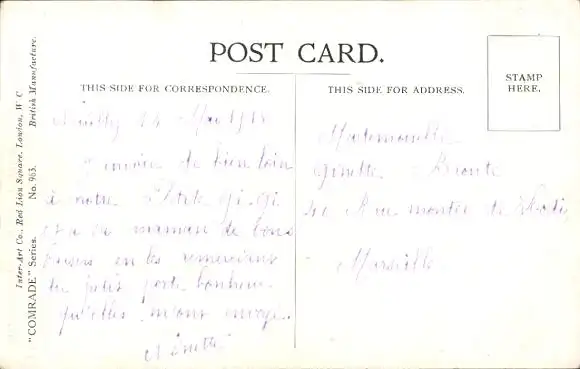 POST CARD.
THIS SIDE FOR CORRESPONDENCE.
THIS SIDE FOR ADDRESS.
STAMP
HERE.
Inter-Art Co., Red Lion Square, London, W C
British Manufacture.
"COMRADE" Series.
No. 963.
Mai
de bien loin
à notre
et a sa maman de bons
baisers en les remerciant
du petit porte bonheur
qu'elles m'ont envoyé.
Mademoiselle
Ginette
Rue montée de
Marseille